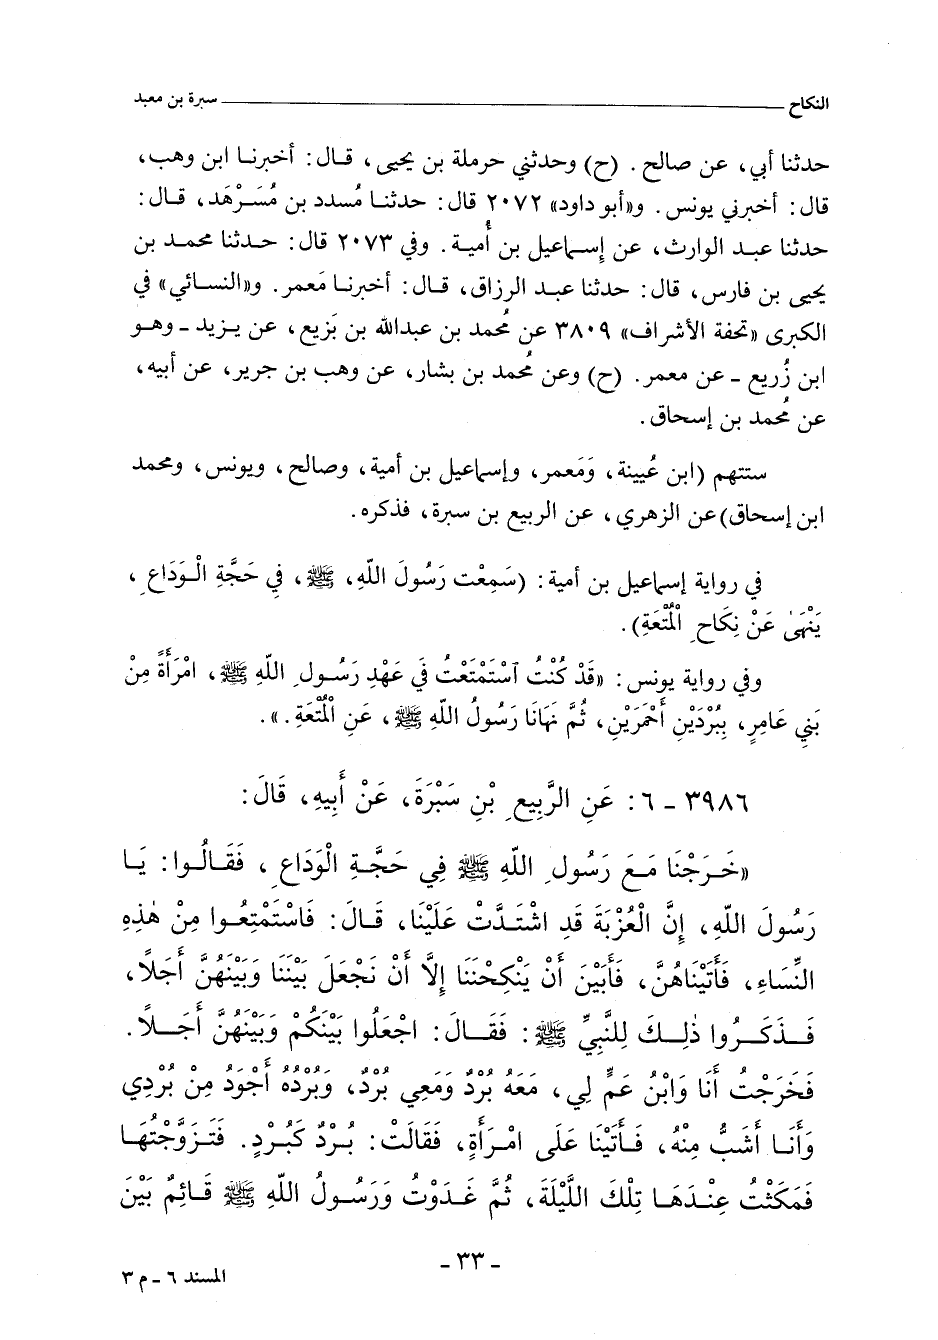 النكاح ــــــــــــ سبرة بن معبد
حدثنا أبي، عن صالح. (ح) وحدثني حرملة بن يحيى، قال: أخبرنا ابن وهب،
قال: أخبرني يونس. و«أبو داود» ٢٠٧٢ قال: حدثنا مُسدد بن مُسَرْهَد، قال:
حدثنا عبد الوارث، عن إسماعيل بن أُمية. وفي ٢٠٧٣ قال: حدثنا محمد بن
يحيى بن فارس، قال: حدثنا عبد الرزاق، قال: أخبرنا مَعمر. و«النسائي» في
الكبرى «تحفة الأشراف» ٣٨٠٩ عن مُحمد بن عبدالله بن بَزيع، عن يزيد ـ وهو
ابن زُريع ـ عن معمر. (ح) وعن مُحمد بن بشار، عن وهب بن جرير، عن أبيه،
عن مُحمد بن إسحاق.
ستتهم (ابن عُيينة، وَمَعمر، وإسماعيل بن أمية، وصالح، ويونس، ومحمد
ابن إسحاق) عن الزهري، عن الربيع بن سبرة، فذكره.
في رواية إسماعيل بن أمية: (سَمِعْت رَسُولَ اللّهِ، ﷺ، فِي حَجَّةِ الْوَدَاعِ،
يَنْهَىٰ عَنْ نِكَاحِ الْمُتْعَةِ).
وفي رواية يونس: «قَدْ كُنْتُ ٱسْتَمْتَعْتُ فِي عَهْدِ رَسُولِ اللّهِ ﷺ، امْرَأَةً مِنْ
بَنِي عَامِرٍ، بِبُرْدَيْنِ أَحْمَرَيْنِ، ثُمَّ نَهَانَا رَسُولُ اللّهِ ﷺ، عَنِ الْمُتْعَةِ.».
٣٩٨٦ ـ ٦: عَنِ الرَّبِيعِ بْنِ سَبْرَةَ، عَنْ أَبِيهِ، قَالَ:
«خَرَجْنَا مَعَ رَسُولِ اللّهِ ﷺ فِي حَجَّةِ الْوَدَاعِ، فَقَالُوا: يَا
رَسُولَ اللّهِ، إِنَّ الْعُزْبَةَ قَدِ اشْتَدَّتْ عَلَيْنَا، قَالَ: فَاسْتَمْتِعُوا مِنْ هٰذِهِ
النِّسَاءِ، فَأَتَيْنَاهُنَّ، فَأَبَيْنَ أَنْ يَنْكِحْنَنَا إِلَّا أَنْ نَجْعَلَ بَيْنَنَا وَبَيْنَهُنَّ أَجَلًا،
فَذَكَرُوا ذٰلِكَ لِلنَّبِيِّ ﷺ: فَقَالَ: اجْعَلُوا بَيْنَكُمْ وَبَيْنَهُنَّ أَجَلًا.
فَخَرَجْتُ أَنَا وَابْنُ عَمٍّ لِي، مَعَهُ بُرْدٌ وَمَعِي بُرْدٌ، وَبُرْدُهُ أَجْوَدُ مِنْ بُرْدِي
وَأَنَا أَشَبُّ مِنْهُ، فَأَتَيْنَا عَلَى امْرَأَةٍ، فَقَالَتْ: بُرْدٌ كَبُرْدٍ. فَتَزَوَّجْتُهَا
فَمَكَثْتُ عِنْدَهَا تِلْكَ اللَّيْلَةَ، ثُمَّ غَدَوْتُ وَرَسُولُ اللّهِ ﷺ قَائِمٌ بَيْنَ
ـ ٣٣ ـ
المسند ٦ ـ م ٣